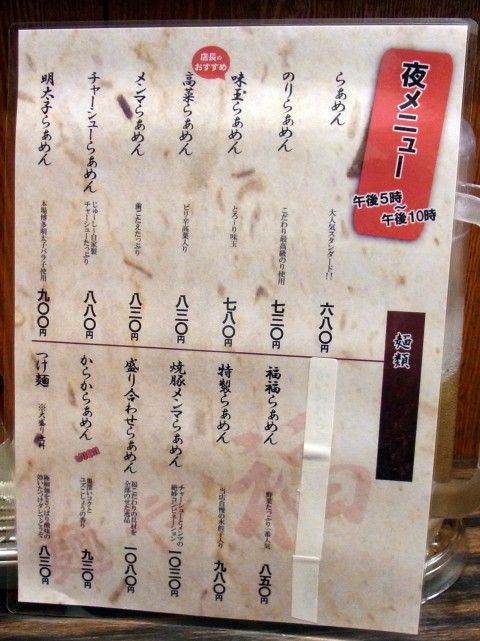 夜メニュー
午後5時
〜
午後10時
麺類
らあめん
大人気スタンダード!!
六八〇円
のりらあめん
こだわり最高級のり使用
七三〇円
味玉らあめん
とろ〜り味玉
七八〇円
店長の
おすすめ
高菜らあめん
ピリ辛高菜入り
八三〇円
メンマらあめん
歯ごたえたっぷり
八三〇円
チャーシューらあめん
じゅーしー自家製
チャーシューたっぷり
八八〇円
明太子らあめん
本場博多明太子バラ子使用
九〇〇円
福福らあめん
野菜たっぷり一番人気
八五〇円
特製らあめん
当店自慢の水餃子入り
九八〇円
焼豚メンマらあめん
チャーシューとメンマの
絶妙コンビネーション
一〇三〇円
盛り合わせらあめん
超こだわりの具材を
全部のせた逸品
一〇八〇円
からからあめん
奥深いコクと
ユズこしょうの香り
九三〇円
つけ麺
※大盛り無料
八三〇円